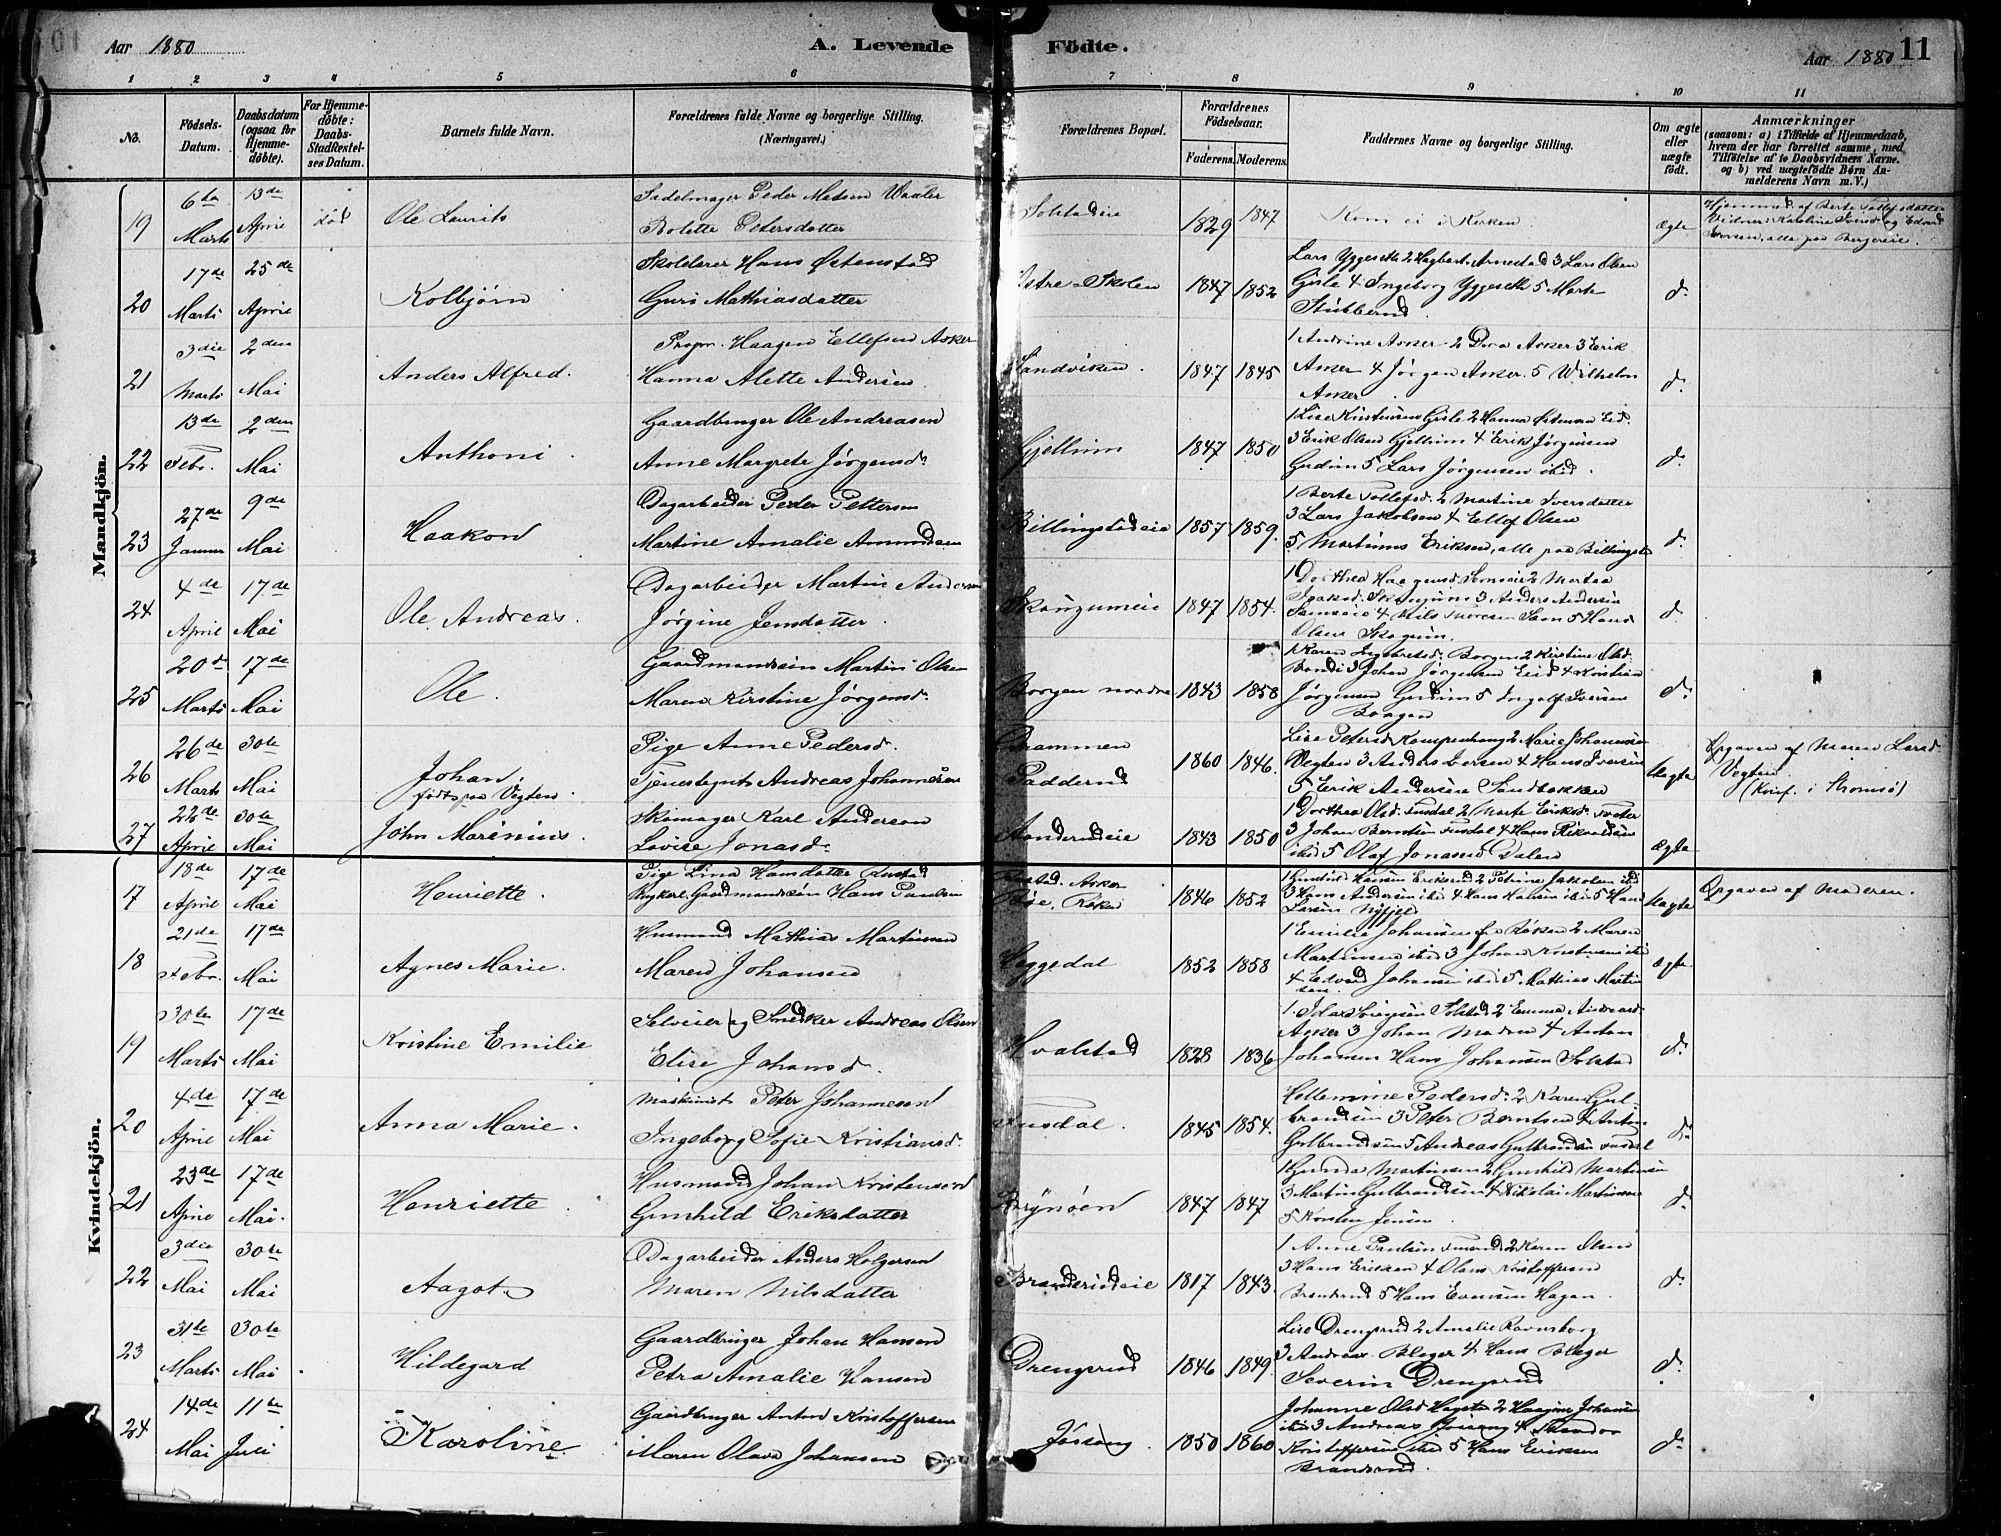 Aar 1880
A. Levende Födte.
Aar 1880 11
1 2 3 4 5 6 7 8 9 10 11
No.
Födsels-Datum.
Daabsdatum (ogsaa for Hjemmedöbte).
For Hjemmedöbte: Daabs-Stadfæstelses Datum.
Barnets fulde Navn.
Forældrenes fulde Navne og borgerlige Stilling. (Næringsvei.)
Forældrenes Bopæl.
Forældrenes Födselsaar.
Faderens. Moderens.
Faddernes Navne og borgerlige Stilling.
Om ægte eller uægte födt.
Anmærkninger
(saasom: a) i Tilfælde af Hjemmedaab, hvem der har forrettet samme, med Tilföielse af to Daabsvidners Navne. og b) ved uægtefödte Börn Anmelderens Navn m. V.)
Mandkjön.
19 6te Marts 13de April Ole Laurits
Sadelmager Peder Matsen Waaler
Bolette Petersdatter
Solstadeie 1829 1847 Kom ei i Kirken Ægte
20 17de Marts 25de April Kolbjørn
Skolelærer Hans Østenstad
Guri Mathiasdatter
Østre Skolen 1847 1852
Lars Yggeseth 2 Hagbart Arnestad 3 Lars Olsen
Gisle 4 Ingeborg Yggeseth 5 Marte
Stubberud d.
21 3die Marts 2den Mai Anders Alfred.
Propr. Haagen Ellefsen Asker
Hanna Alette Andersen
Sandviken. 1847 1845
1 Andrine Asker 2 Dora Asker 3 Erik
Asker 4 Jørgen Asker. 5 Wilhelm
Asker. d.
22 13de Febr. 2den Mai Anthoni.
Gaardbruger Ole Andreasen
Anne Margrete Jørgensd.
Gjellum 1847 1850
1 Lise Kristensen Gisle 2 Hanna Østensen Eid.
3 Erik Olsen Gjellum 4 Erik Jørgensen
Gudim 5 Lars Jørgensen ibid. d.
23 27de Januar 9de Mai Haakon
Dagarbeider Peder Pettersen
Martine Amalie Amundsen
Billingstadeie 1857 1859.
1 Berte Tollefsd. 2 Martine Iversdatter
3 Lars Jakobsen 4 Ellef Olsen
5 Martinus Eriksen, alle paa Billingstad d.
24 4de April 17de Mai Ole Andreas.
Dagarbeider Martin Andersen
Jørgine Jensdatter.
Skaugumeie 1847 1854.
1 Dorthea Haagensd. Semseie 2 Martea
Isaksd. Skaugum 3 Anders Andersen
Semseie 4 Nils Thoresen Sem 5 Hans
Olsen Skogum. d.
25 20de Marts 17de Mai Ole.
Gaardmandssøn Martin Olsen
Maren Kirstine Jørgensd.
Borgen nordre 1843 1858
1 Karen Ingebretsd. Borgen 2 Kirstine Olsd.
Bondi 3 Johan Jørgensen Eid 4 Kristian
Jørgensen Gudim 5 Ingolf Iversen
Borgen d.
26 26de Marts 30te Mai Johan.
født paa Vegten.
Pige Anne Pedersd.
Tjenestegut Andreas Johannesen
Drammen
Padderud 1860 1846.
Lise Petersd. 2 Marie Johannesen
Vegten 3 Anders Iversen 4 Hans Iversen
5 Erik Andersen Sandbakken Uægte
Opgaven af Maren Larsd.
Vegten.
(Konf. i Stromsø)
27 22de April 30te Mai John Marinius.
Skomager Karl Anderson
Lovise Jonasd.
1843 1850
1 Dorthea Olsd. Fusdal 2 Marte Eriksd.
3 Johan Berntsen Fusdal 4 Hans
ibid 5 Olaf Jonassen Dalen ægte
Kvindekjön.
17 18de April 17de Mai Henriette.
Pige Lina Hansdatter
Ungkarl, Gaardmandssøn Hans Paulsen
Asker
Bøe, Røken 1846 1852
Uægte Opgaven af Moderen.
18 21de Febr. 17de Mai Agnes Marie.
Husmand Mathias Martinsen
Maren Johansen
Heggedal 1852 1858
1 Emilie Johansen fra Røken 2 Maren
Martinsen ibid 3 Johan Kristensen ibid
4 Edvard Johansen ibid 5 Mathias Martinsen ægte
19 30te Marts 17de Mai Kristine Emilie
Selveier og Snedker Andreas Olsen
Elise Johansd.
Hvalstad 1828 1836
1. Ida Sørensen Solstad 2 Emma Andreasd.
Asker 3 Johan Madsen 4 Anton
Johansen Hans Johansen Solstad d.
20 4de April 17de Mai Anna Marie.
Maskinist Peter Johannesen
Ingeborg Sofie Kristiansd.
Fusdal. 1845 1854.
Hellemine Pedersd. 2 Karen Gulbrandsen 3 Peter Berntsen 4 Anton
Gulbrandsen 5 Andreas Gulbrandsen Fusdal d.
21 23de April 17de Mai. Henriette.
Husmand Johan Kristensen
Gunhild Eriksdatter
Brynøen 1847 1847
1 Gunda Martinsen 2 Gunhild Martinsen
3 Martin Gulbrandsen 4 Nikolai Martinsen
5 Karsten Jensen. d.
22 3die Mai 30te Mai Aagot.
Dagarbeider Anders Holgersen
Maren Nilsdatter
Brenderudeie 1817 1843.
1 Anne Paulsen 2 Karen Olsen
3 Hans Eriksen 4 Olaus Kristoffersen
Brenderud 5 Hans Evensen Hagen. d.
23 31te Marts 30te Mai. Hildegard
Gaardbruger Johan Hansen
Petra Amalie Hansen
Drengsrud 1846 1849.
Lise Drengsrud 2 Amalie Ravnsborg
3 Andreas Bleger 4 Hans Bleger
Severin Drengsrud d.
24 14de Mai 11te Juli Karoline.
Gaardbruger Anton Kristoffersen
Maren Olava Johansen
Jøssong. 1850 1860
Johanne Olsd 2 Haagine Johansen
ibid 3 Andreas
Kristoffersen ibid 5 Hans Eriksen
Brenderud. d.